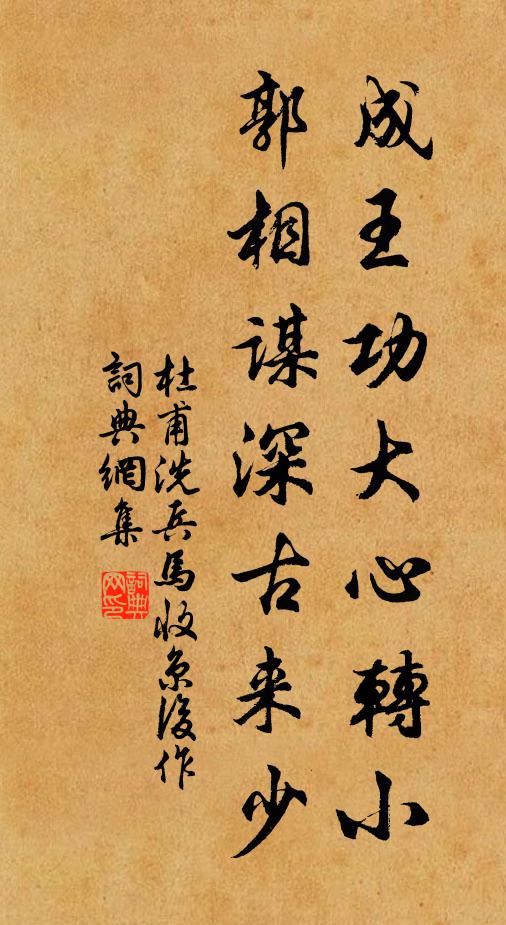 成王功大心轉小
郭相謀深古来少
杜甫洗兵馬收京後作
詞典網集
詞典网印